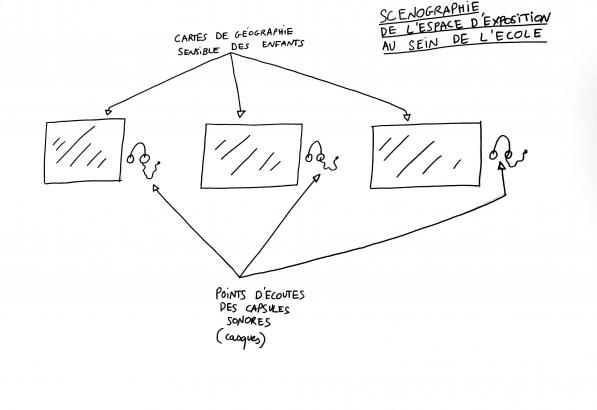 SCENOGRAPHIE
DE L'ESPACE D'EXPOSITION
AU SEIN DE L'ECOLE
CARTES DE GÉOGRAPHIE
SENSIBLE DES ENFANTS
POINTS D'ÉCOUTES
DES CAPSULES
SONORES
(casques)